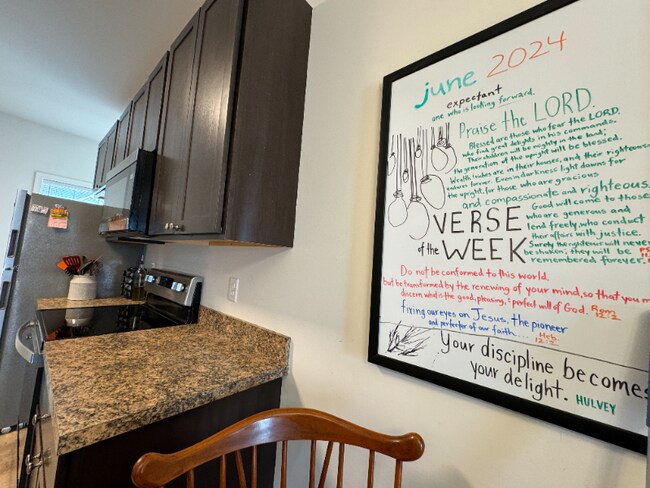 june 2024
expectant
one who is looking forward.
Praise the LORD.
Blessed are those who fear the LORD,
who find great delights in his commands.
Their children will be mighty in the land;
the generation of the upright will be blessed.
Wealth & riches are in their houses, and their righteousness
endures forever. Even in darkness light dawns for
the upright, for those who are gracious
and compassionate and righteous.
Good will come to those
who are generous and
lend freely, who conduct
their affairs with justice.
Surely the righteous will never
be shaken; they will be
remembered forever.
VERSE
of the WEEK
Do not be conformed to this world,
but be transformed by the renewing of your mind, so that you may
discern what is the good, pleasing, & perfect will of God. Rom 12:2
fixing our eyes on Jesus, the pioneer
and perfecter of our faith... Heb. 12:2
Your discipline becomes
your delight. HULVEY